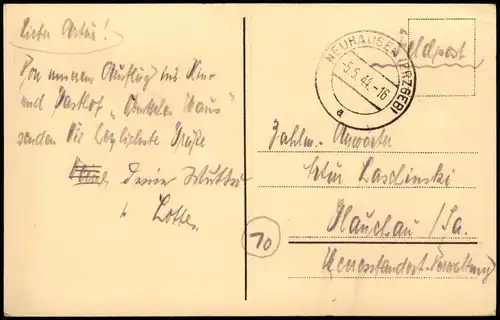 Lieber Artur!
Von unserem Ausflug ins Kino
und Gasthof „ Haus"
senden Dir herzlichste Grüße
Deine Mutter
u. Lotte.
NEUHAUSEN (ERZGEB)
-5.5.44.-16
a
Feldpost
Zahlm. Anwärter
Glauchau /Sa.
Heeresstandort-Verwaltung
70